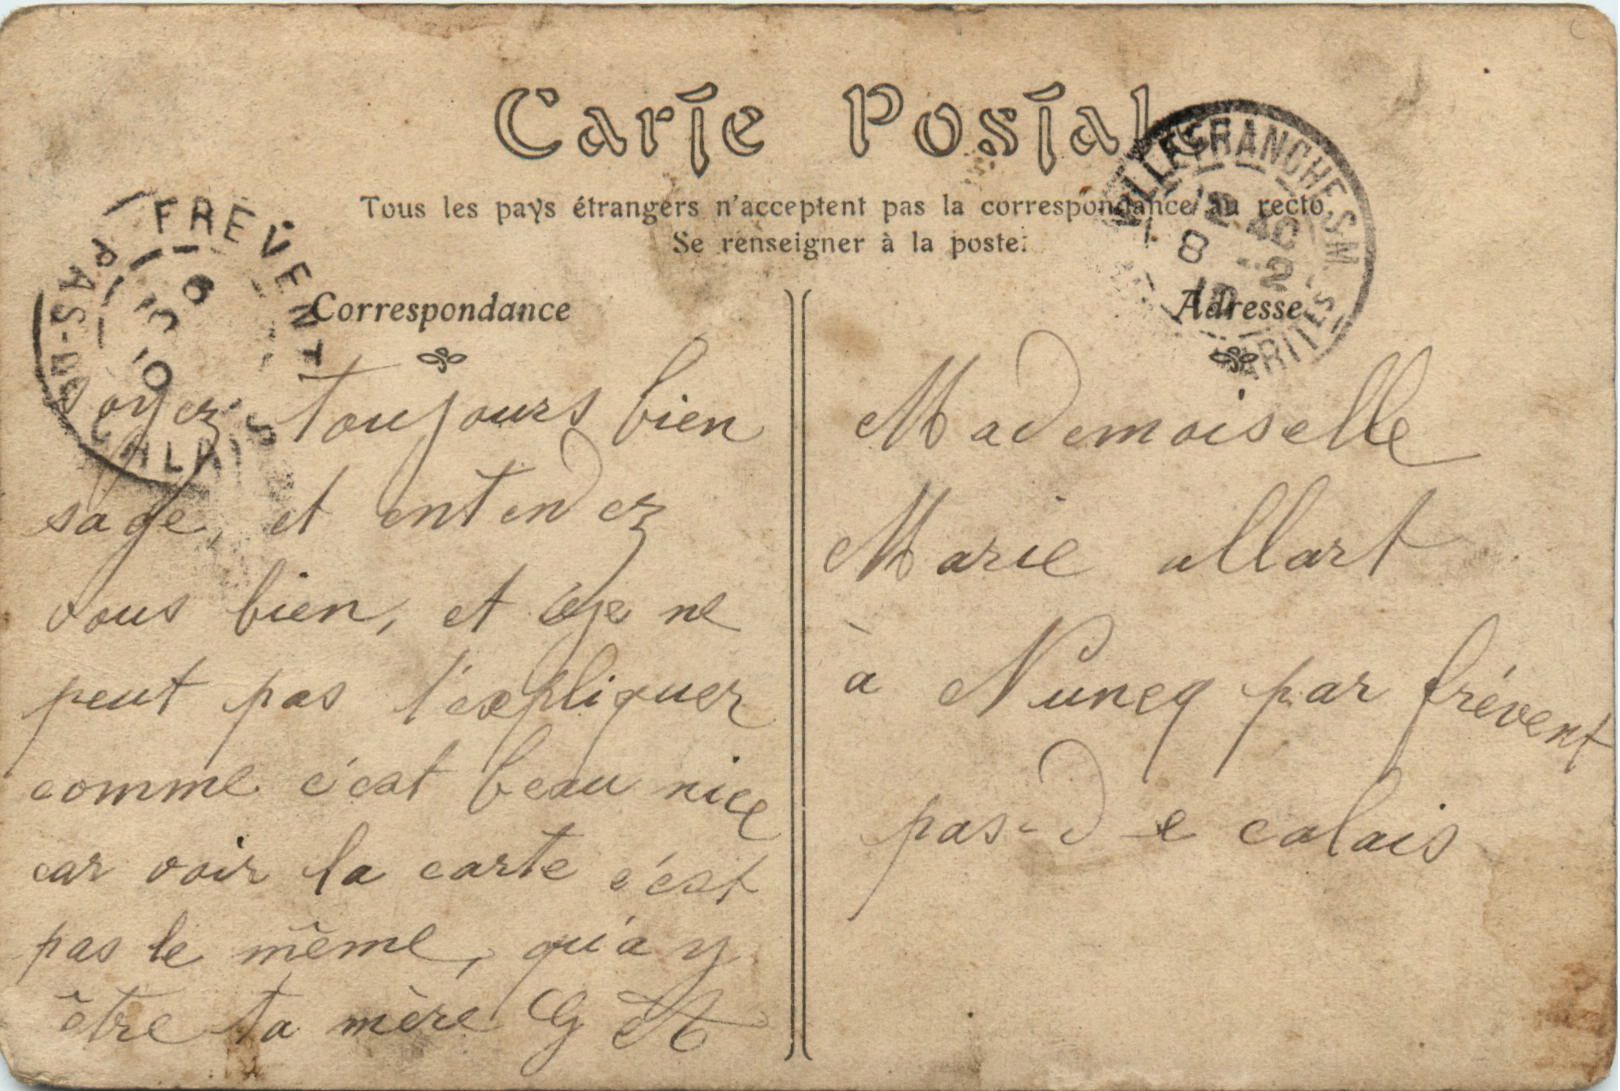 Carte Postale
Tous les pays étrangers n'acceptent pas la correspondance au recto.
Se renseigner à la poste.
FREVENT
PAS-DE-CALAIS
6
10
VILLEFRANCHE-S-M
8 - 2
Correspondance
soyez toujours bien
sage, et entendez
vous bien, et je ne
peut pas t'expliquer
comme c'est beau nice
car voir la carte c'est
pas le même, qu'a y
être ta mère G et
Adresse
Mademoiselle
Marie allart
à Nuncq par frévent
pas-de calais